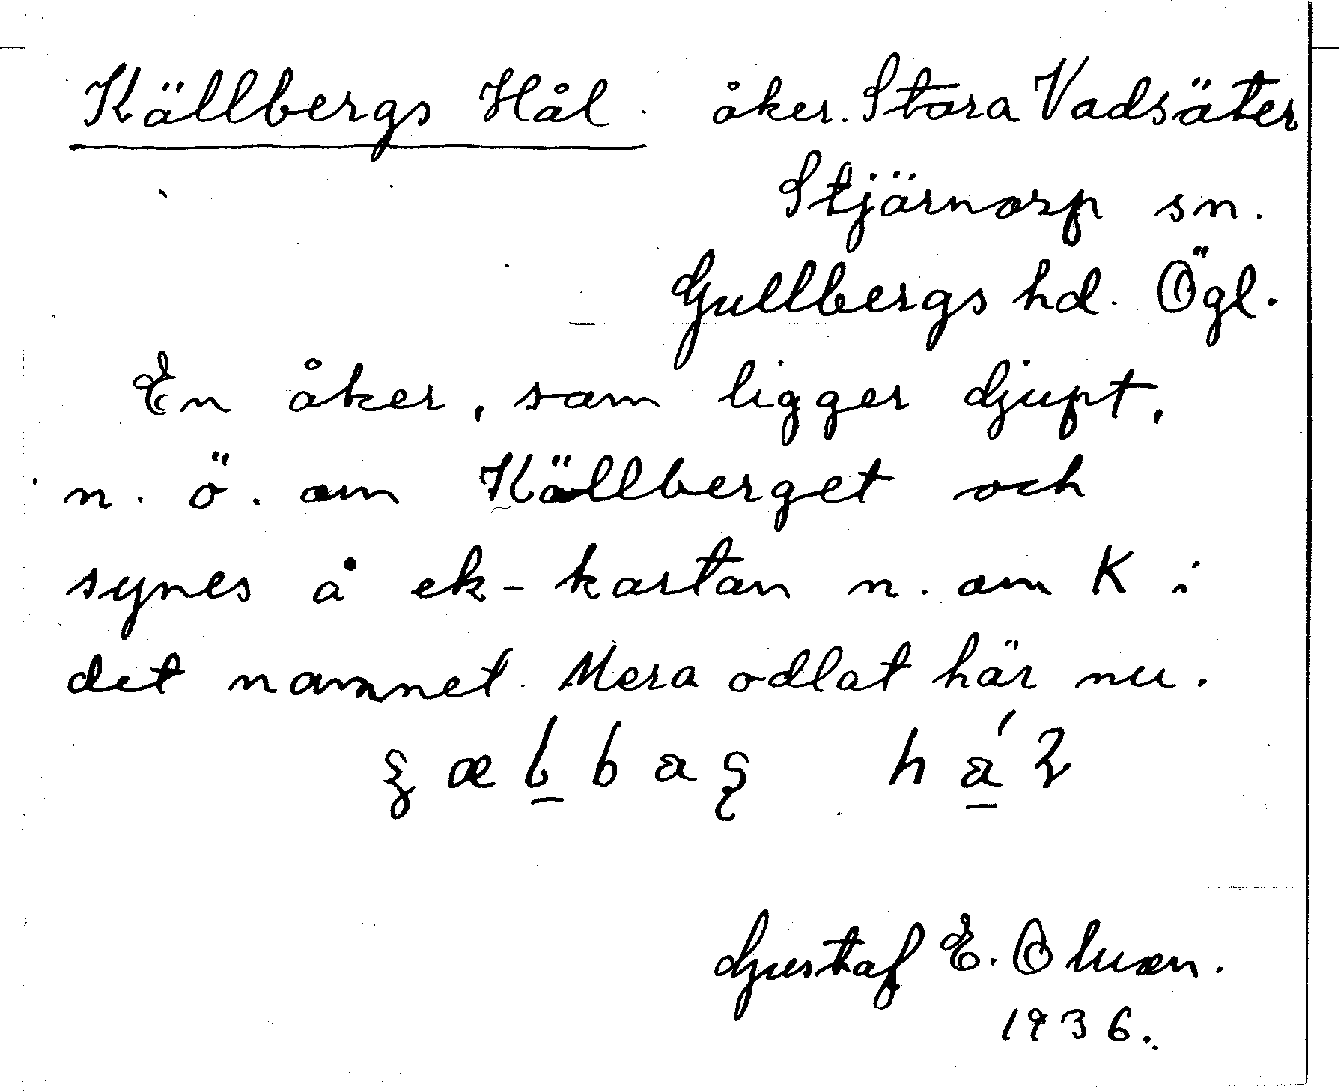 Källbergs Hål. åker. Stora Vadsäter
Stjärnorp sn.
Gullbergs hd. Ögl.
En åker, som ligger djupt,
n. ö. om Källberget och
synes å ek-kartan n. om K i
det namnet. Mera odlat här nu.
Gustaf E.
1936.